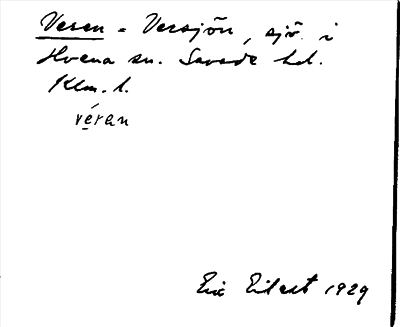 Veren = Versjön, sjö i
Hvena sn. Sevede hd.
Klm. l.
véran
Eric Eilert 1929